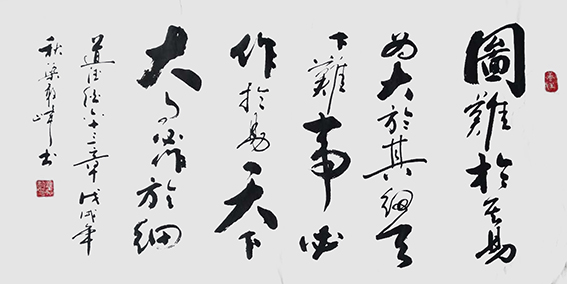 圖難於其易
為大於其細天
下難事必
作於易天下
大事必作於細
道德經六十三章戊戌年
秋梁峰书